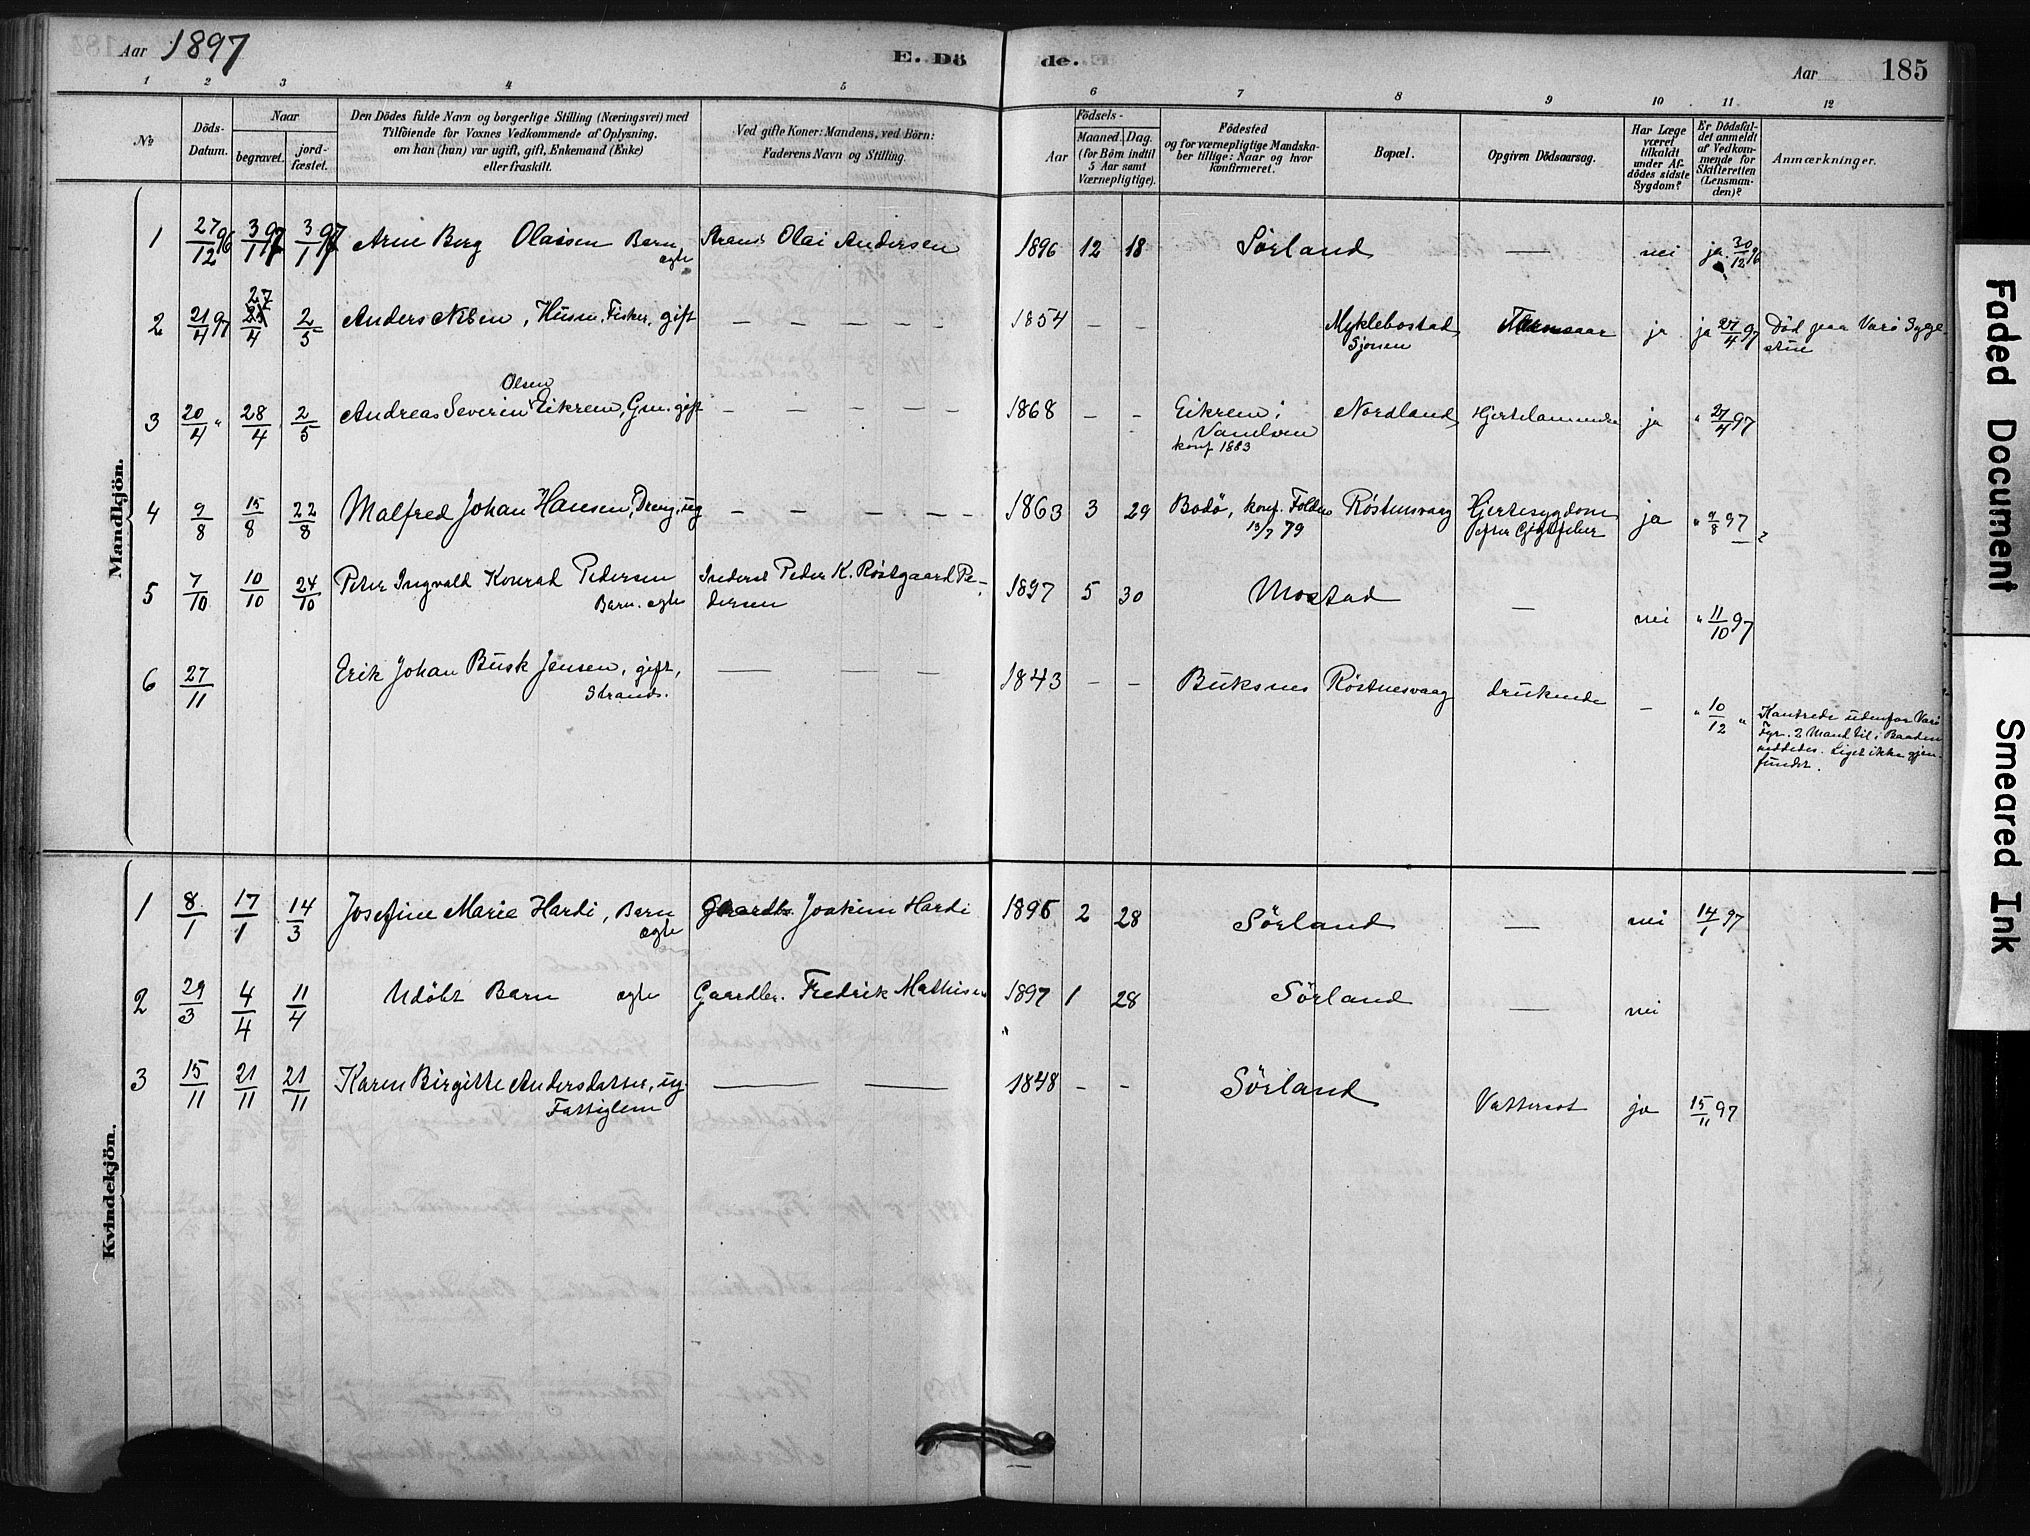 Aar 1897 E. Döde. Aar 185
1 2 3 4 5 6 7 8 9 10 11 12
No
Döds-Datum.
Naar
begravet.
jord-fæstet.
Den Dödes fulde Navn og borgerlige Stilling (Næringsvei) med
Tilföiende for Voxnes Vedkommende af Oplysning,
om han (hun) var ugift, gift, Enkemand (Enke)
eller fraskilt.
Ved gifte Koner: Mandens, ved Börn:
Faderens Navn og Stilling.
Födsels-
Aar
Maaned. Dag.
(for Börn indtil
5 Aar samt
Værnepligtige).
Födested
og for værnepligtige Mandska-
ber tillige: Naar og hvor
konfirmeret.
Bopæl.
Opgiven Dödsaarsag.
Har Læge
været
tilkaldt
under Af-
dödes sidste
Sygdom?
Er Dödsfal-
det anmeldt
af Vedkom-
mende for
Skifteretten
(Lensman-
den)?
Anmærkninger.
Mandkjön.
1 27/12 96 3/1 97 3/1 97 Arne Berg Olaisen Barn, Strands Olai Andersen 1896 12 18 Sörland — nei ja 30/12 96
ægte
2 21/4 97 27/4 2/5 Anders Nilsen, Husm. Fisker, gift — — — — — 1854 — — Myklebostad, ja ja 27/4 97 Död paa Værö Syge-
Sjonen stue
Olsen
3 20/4 " 28/4 2/5 Andreas Severin Eikrem, Gm. gift — — — — — 1868 — — Eikrem i Nordland, Hjertelammelse ja " 27/4 97
Vanelven
konf 1883
4 9/8 15/8 22/8 Malfred Johan Hansen, Dreng, ug — — — — — 1863 3 29 Bodö, konf. Folden Röstnesvaag Hjertesygdom ja " 9/8 97
13/7 79 efter Gigtfeber
5 7/10 10/10 24/10 Peter Ingvald Konrad Pedersen Inderst Peder K. Röstgaard Pe- 1897 5 30 Mostad — nei " 11/10 97
Barn. ægte dersen
6 27/11 Erik Johan Busk Jensen, gift, — — — 1843 — — Buksnes Röstnesvaag druknede — " 10/12 "
Strands.
Kantrede udenfor Værö
Fyr. 2 Mand til i Baaden
reddedes. Liget ikke gjen-
fundet.
Kvindekjön.
1 8/1 17/1 14/3 Josefine Marie Hardi, Barn Gaardbr. Joakim Hardi 1896 2 28 Sörland — nei 14/1 97
ægte
2 29/3 4/4 11/4 Udöbt Barn ægte Gaardbr. Fredrik Mathisen 1897 1 28 Sörland — nei
"
3 15/11 21/11 21/11 Karen Birgitte Andersdatter, ug. — — 1848 — — Sörland Vattersot ja 15/11 97
Fattiglem
Faded Document
Smeared Ink